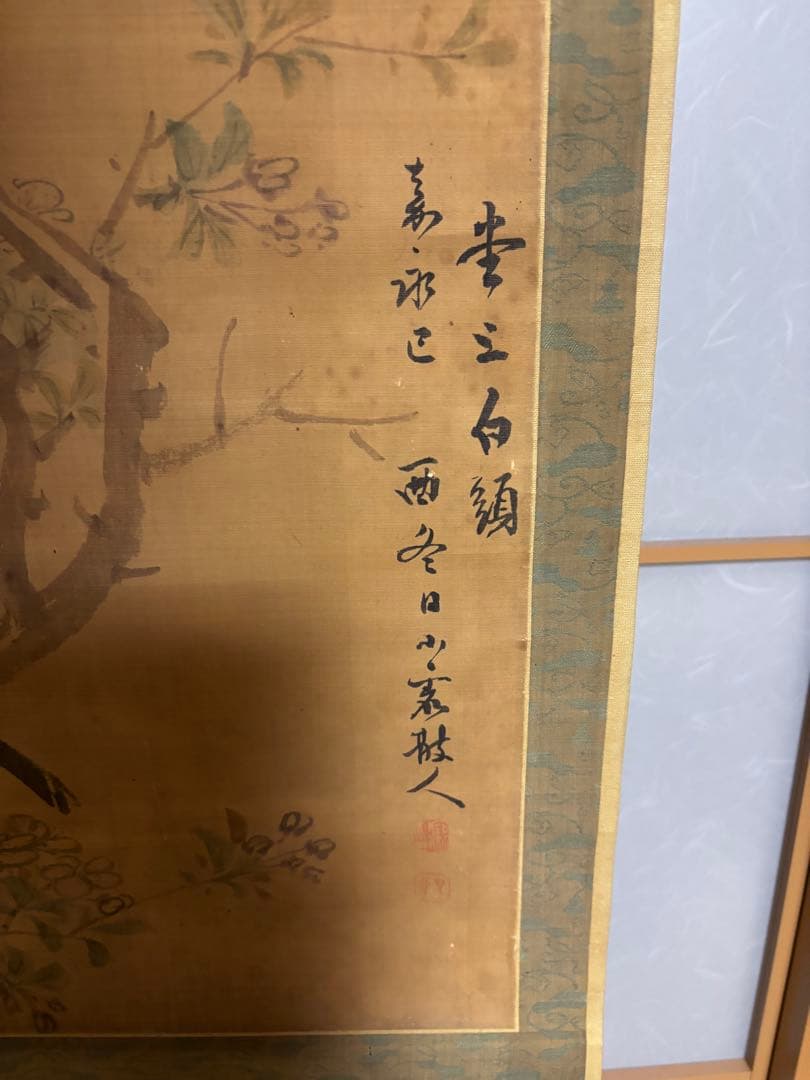 堂上白頭
嘉永己酉冬日小散人